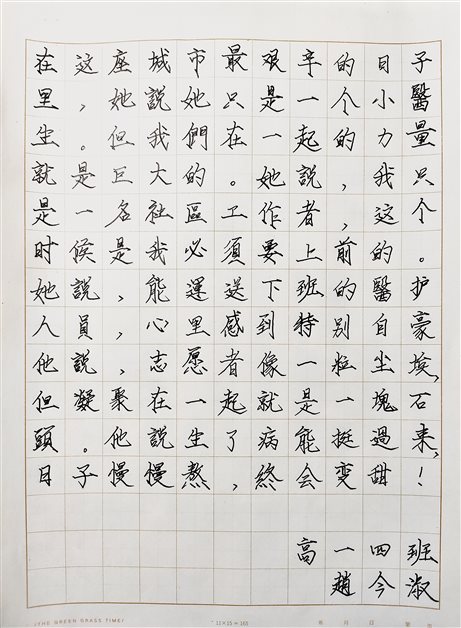 在这座城市最艱辛的日子
里,她說她只是一个小醫
生。但我們在一起的力量
就是巨大的。她說,我只
是一名社區工作者,这个
时候是我必須要上前的。
她說,能運送下班的醫护
人員,心里感到特别自豪
他說,志愿者像一粒尘埃,
但凝聚在一起就是一塊石
頭。他說生了病能挺過来,
日子慢慢熬,終会变甜!
高一四班
趙今淑
(THE GREEN GRASS TIME)